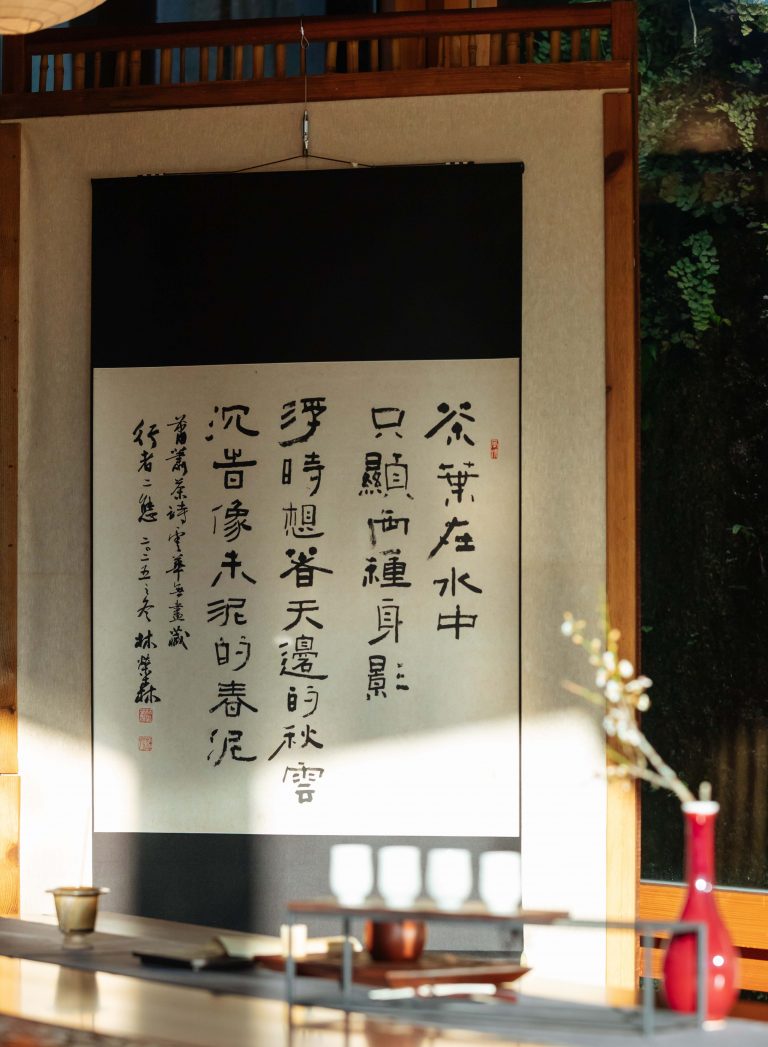 茶葉在水中
只顯兩種身影
浮時想着天邊的秋雲
沉旹像未泥的春泥
茶詩雲華無盡藏
行者二態 二〇二五之冬 林榮森